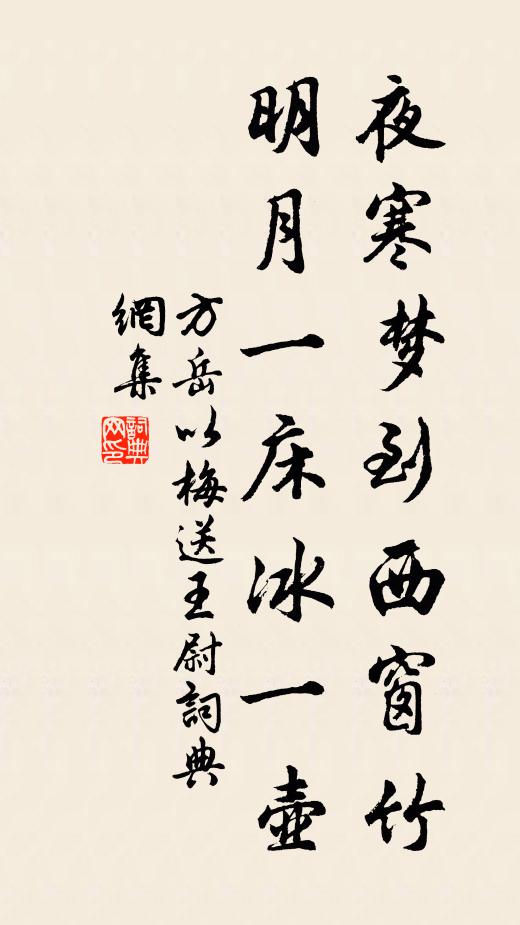 夜寒梦到西窗竹
明月一床冰一壶
方岳以梅送王尉詞典
網集
詞典
网印